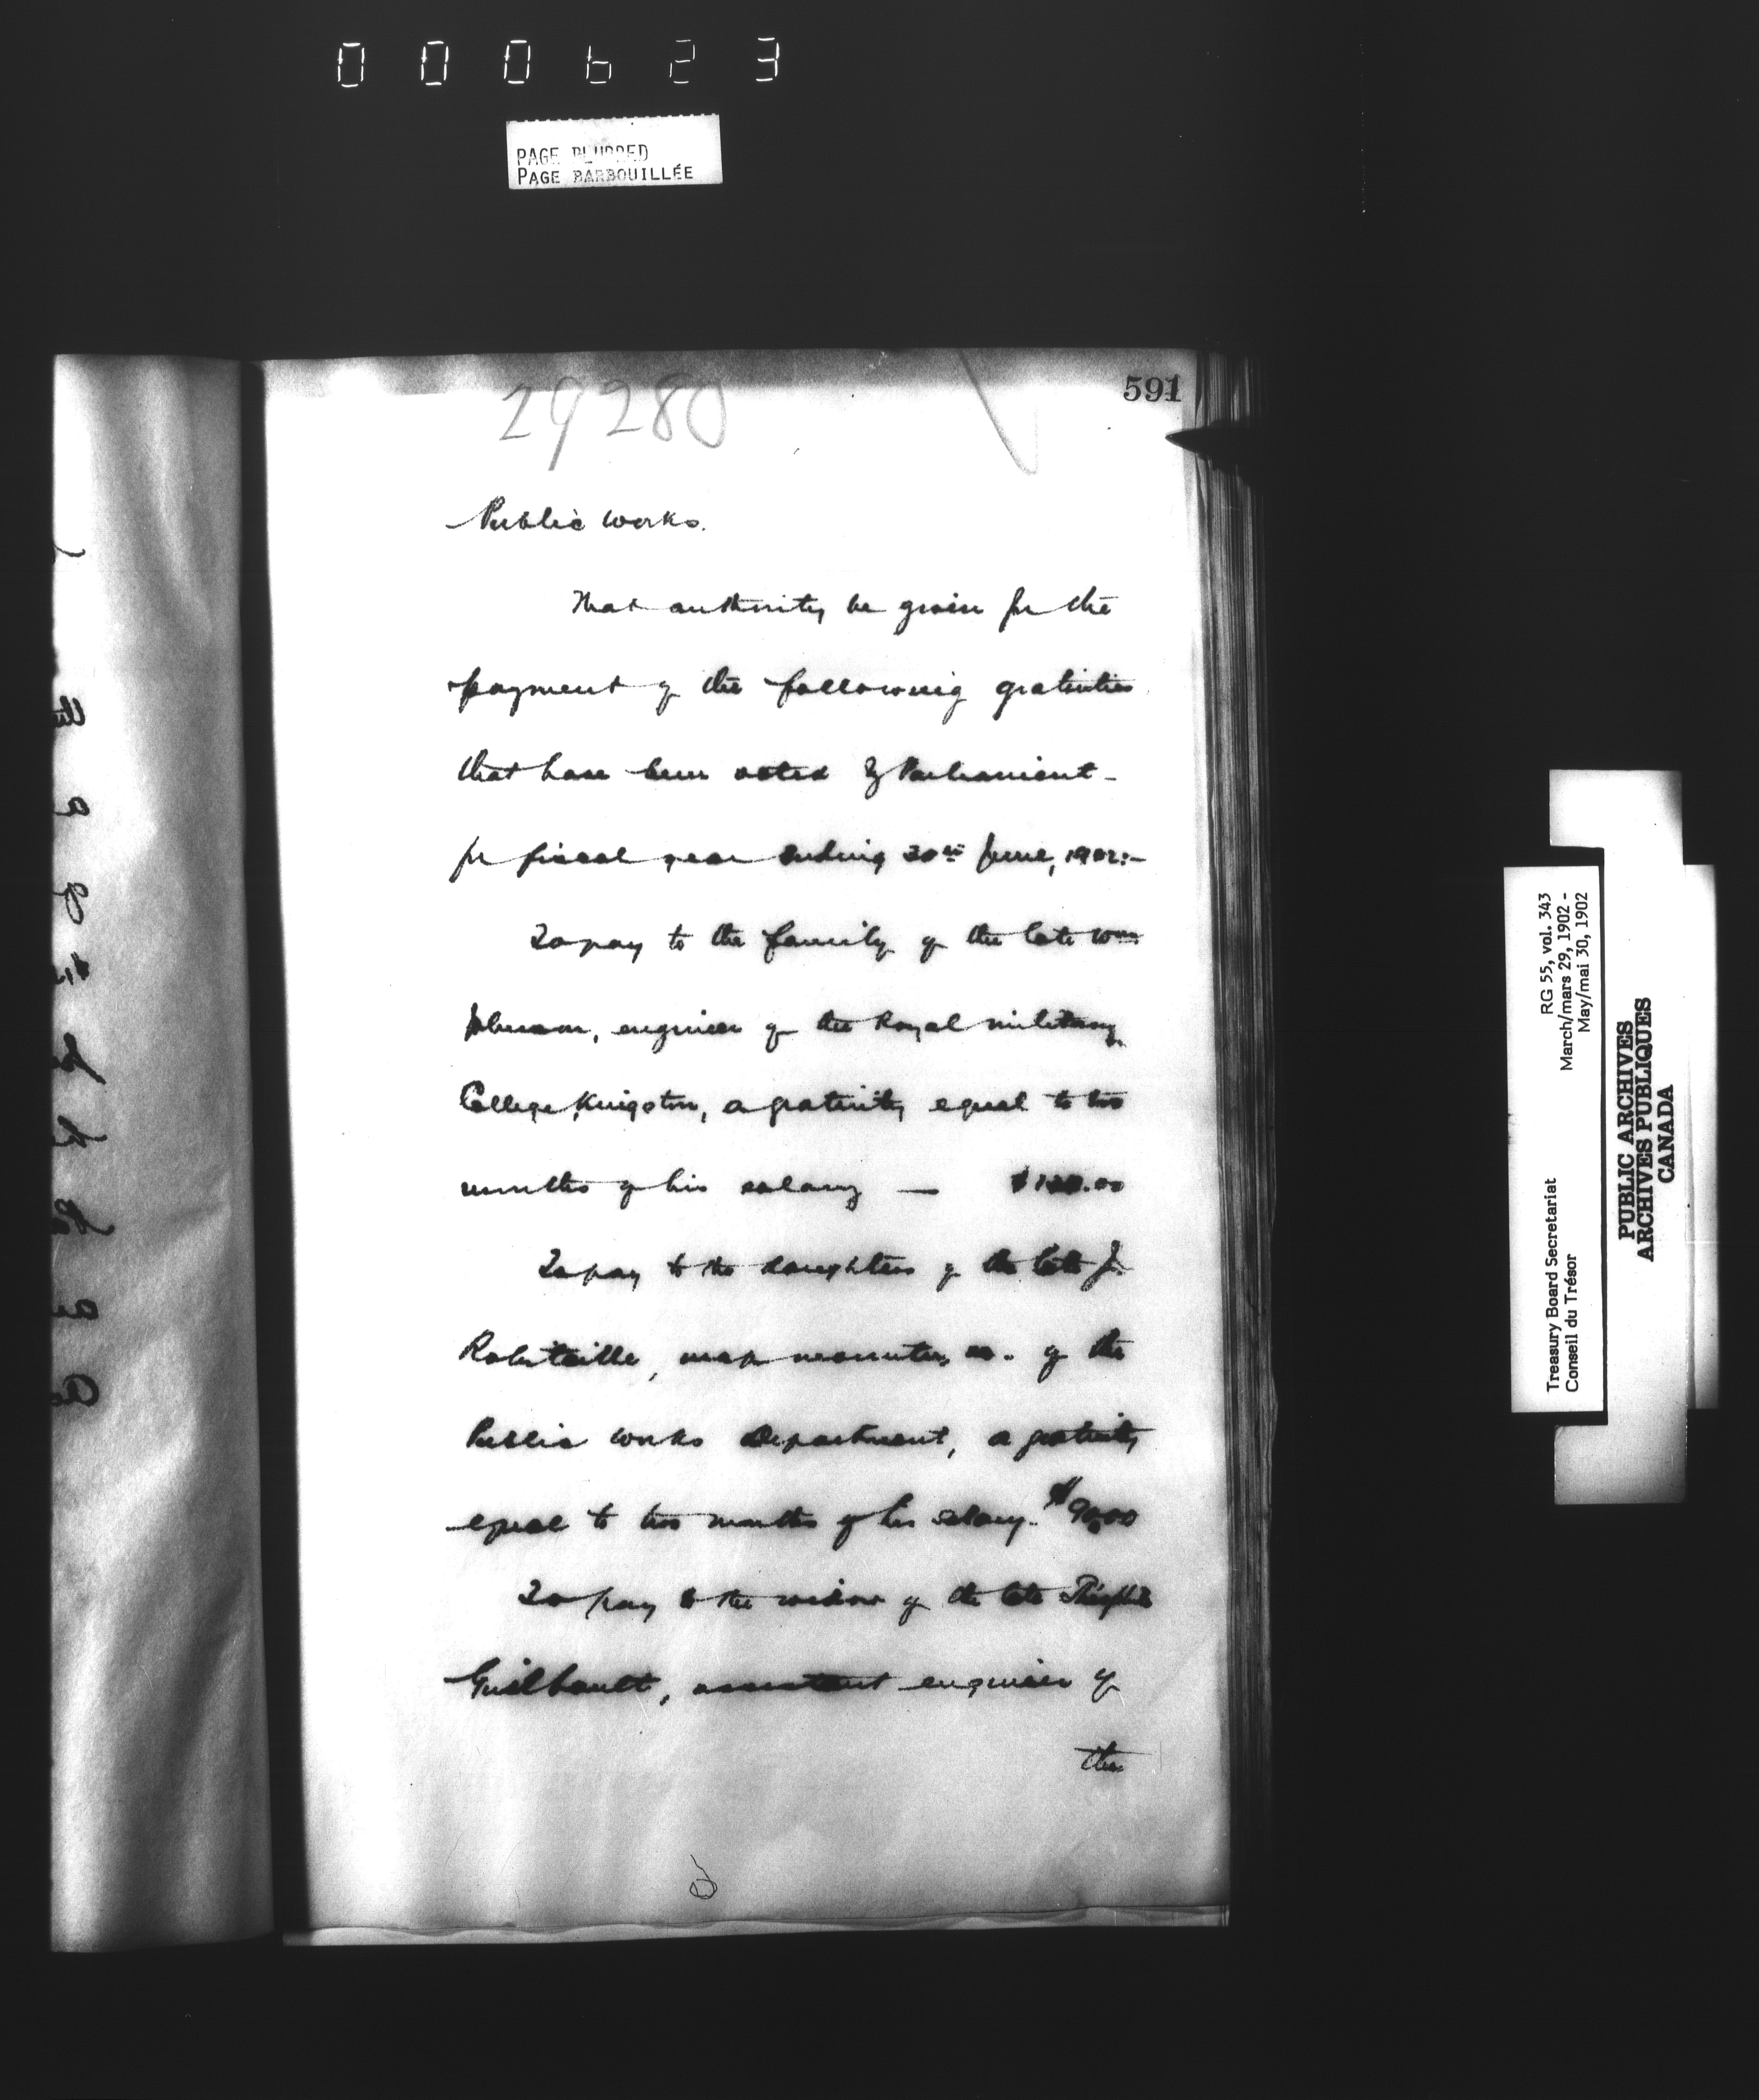 000623
PAGE BLURRED
PAGE BARBOUILLÉE
591
29280
Public Works.
That authority be given for the
payment of the following gratuities
that have been voted by Parliament
for fiscal year ending 30th June, 1902:-
To pay to the family of the late Wm
Johnson, engineer of the Royal Military
College, Kingston, a gratuity equal to two
months of his salary — $120.00
To pay to the daughters of the late J.
Robitaille, map mounter, of the
Public Works Department, a gratuity
equal to two months of his salary. $90.00
To pay to the widow of the late Théophile
Guilbault, assistant engineer of
the
RG 55, vol. 343
March/mars 29, 1902 -
May/mai 30, 1902
Treasury Board Secretariat
Conseil du Trésor
PUBLIC ARCHIVES
ARCHIVES PUBLIQUES
CANADA